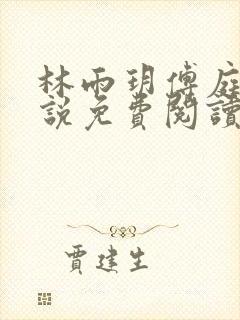 林雨玥傅庭
說免費閱讀
賈建生